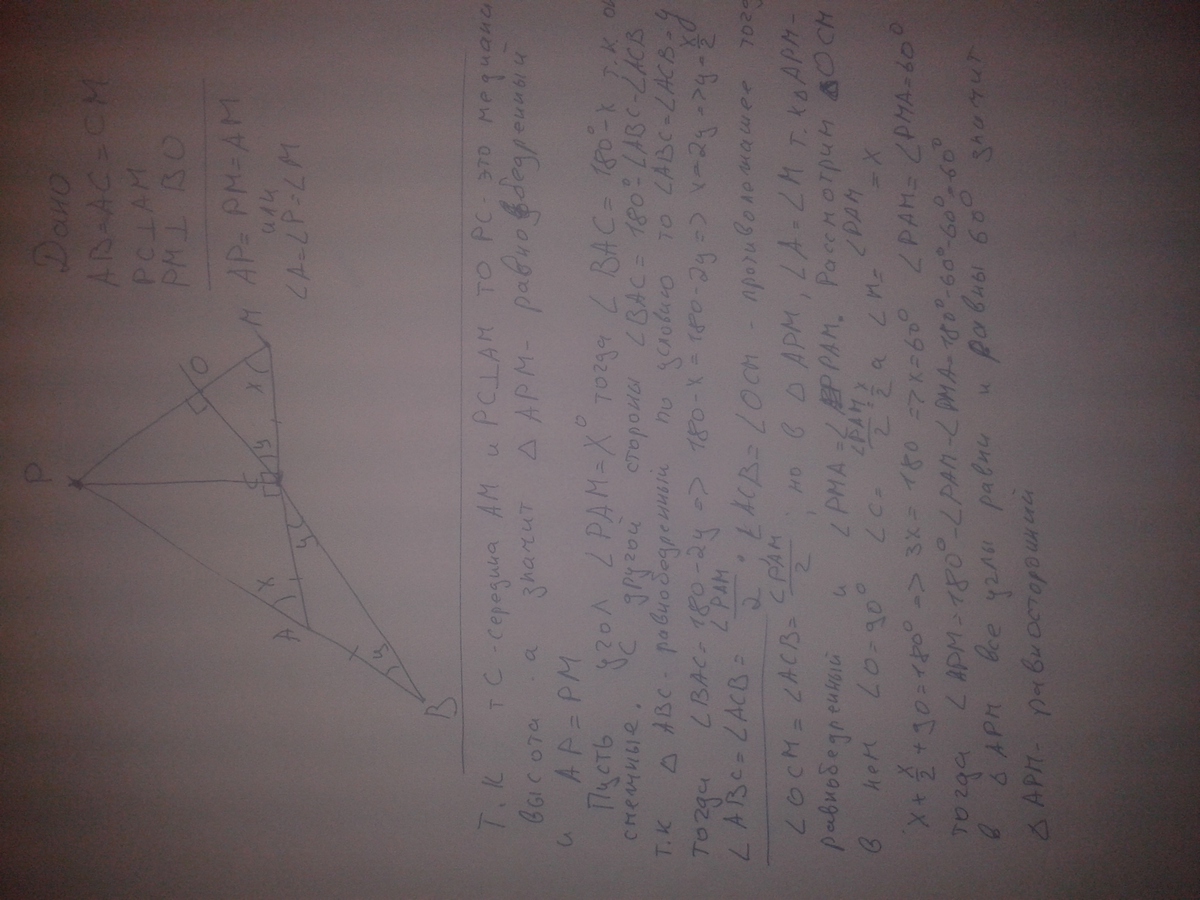 Дано
AB=AC=CM
PC⊥AM
PM⊥BO
AP=PM=AM
или
∠A=∠P=∠M
P
O
M
x
C
y
x
A
y
y
B
Т.к т С-середина AM и PC⊥AM то PC-это медиана
высота. а значит △APM- равнобедренный
и AP=PM
Пусть угол ∠PAM=X° тогда ∠BAC=180°-x т.к
смежные. С другой стороны ∠BAC=180°-∠ABC-∠ACB
т.к △ABC-равнобедренный по условию то ∠ABC=∠ACB=y
тогда ∠BAC=180-2y => 180-x=180-2y => x=2y => y=x/2
∠ABC=∠ACB=∠PAM/2. ∠ACB=∠OCM-противолежащее
∠OCM=∠ACB=∠PAM/2, но в △APM, ∠A=∠M т.к △APM-
равнобедренный и ∠PMA=∠PAM. Рассмотрим △OCM
в нем ∠O=90° ∠C=∠PAM/2=x/2 а ∠M=∠PAM=x
x+x/2+90=180° => 3x=180 => x=60° ∠PAM=∠PMA=60°
тогда ∠APM=180°-∠PAM-∠PMA=180°-60°-60°=60°
в △APM все углы равны и равны 60° значит
△APM-равносторонний